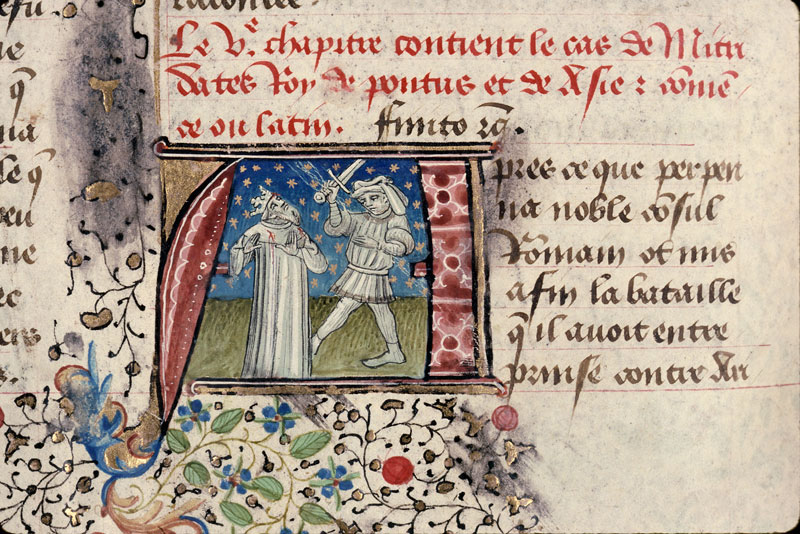 racontee.
Le Ve chapitre contient le cas de Mitri
dates Roy de pontus et de Asie : comẽ
ce ou latin. finito rq̃.
pres ce que perpen
na noble cõsul
Romain ot mis
a fin la bataille
q̃ il auoit entre
prinse contre Ari
q̃
na
le q̃
peu
ne
ec
iers
s.